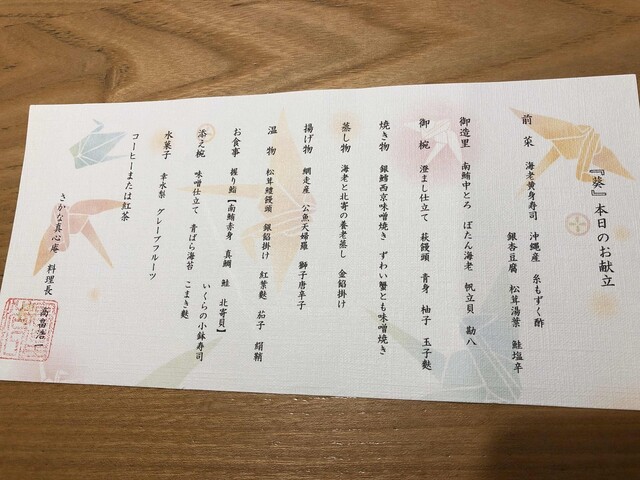 『葵』本日のお献立
前菜 海老黄身寿司 沖縄産 糸もずく酢
銀杏豆腐 松茸湯葉 鮭塩辛
御造里 南鮪中とろ ぼたん海老 帆立貝 勘八
御椀 澄まし仕立て 萩饅頭 青身 柚子 玉子麩
焼き物 銀鱈西京味噌焼き ずわい蟹とも味噌焼き
蒸し物 海老と北寄の養老蒸し 金餡掛け
揚げ物 網走産 公魚天婦羅 獅子唐辛子
温物 松茸鱧饅頭 銀餡掛け 紅葉麩 茄子 絹鞘
お食事 握り鮨【南鮪赤身 真鯛 鮭 北寄貝】
いくらの小鉢寿司
添え椀 味噌仕立て 青ばら海苔 こまき麩
水菓子 幸水梨 グレープフルーツ
コーヒーまたは紅茶
さかな真心庵 料理長 高畠浩一